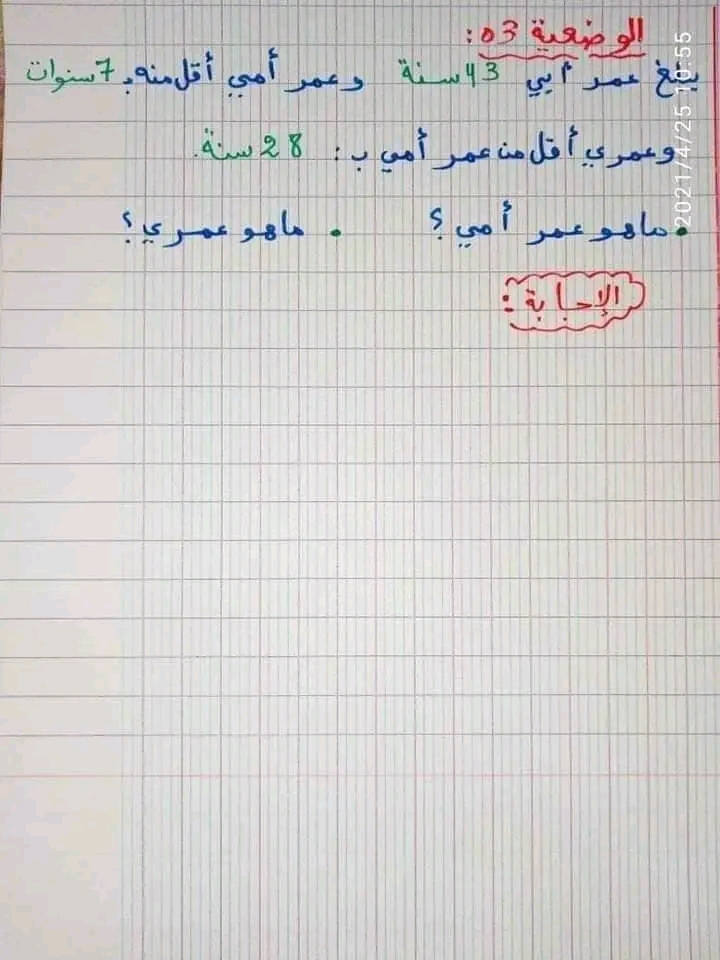 الوضعية 03:
يبلغ عمر أبي 43 سنة وعمر أمي أقل منه بـ 7 سنوات
وعمري أقل من عمر أمي ب: 28 سنة.
• ماهو عمر أمي؟ • ماهو عمري؟
الإجابة:
2021/4/25 10:55